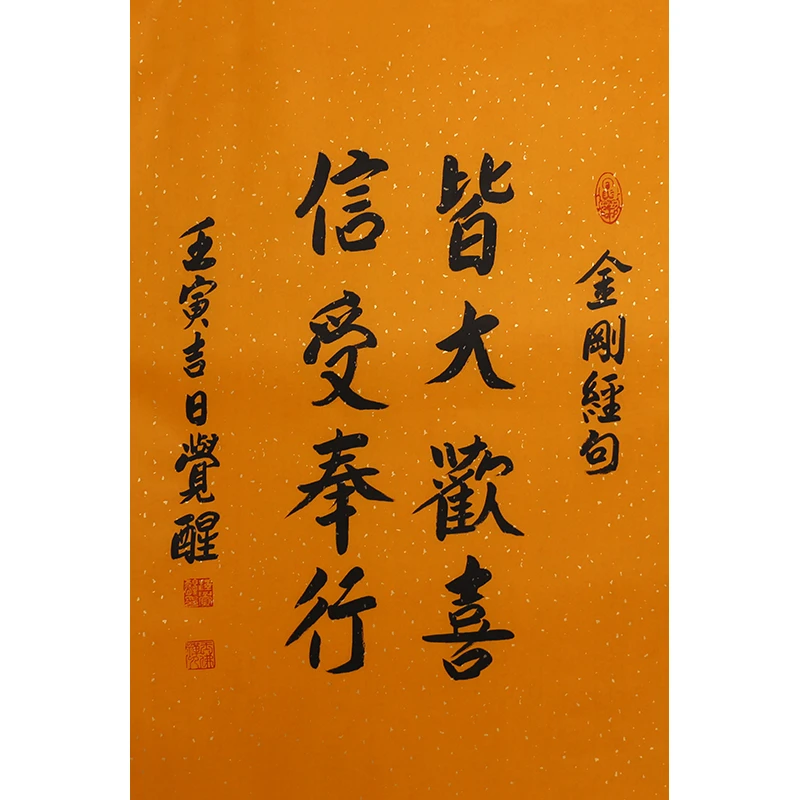 金剛經句
皆大歡喜
信受奉行
壬寅吉日覺醒